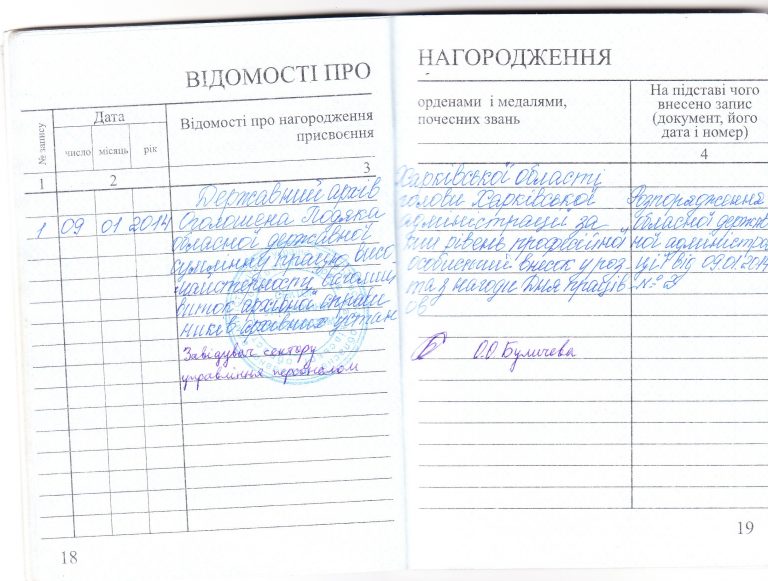 ВІДОМОСТІ ПРО НАГОРОДЖЕННЯ
№ запису
Дата
число місяць рік
Відомості про нагородження орденами і медалями,
присвоєння почесних звань
На підставі чого
внесено запис
(документ, його
дата і номер)
1 2 3 4
Державний архів Харківської області
1 09 01 2014 Оголошена Подяка голови Харківської Розпорядження
обласної державної адміністрації за обласної держав
сумлінну працю, висо- кий рівень професійної ної адміністра
майстерності, вагомий особистий внесок у роз ції від 09.01.2014
виток архівної справи та з нагоди Дня праців №
ників архівних устан ов
Завідувач сектору О.О. Буличева
управління персоналом
18 19